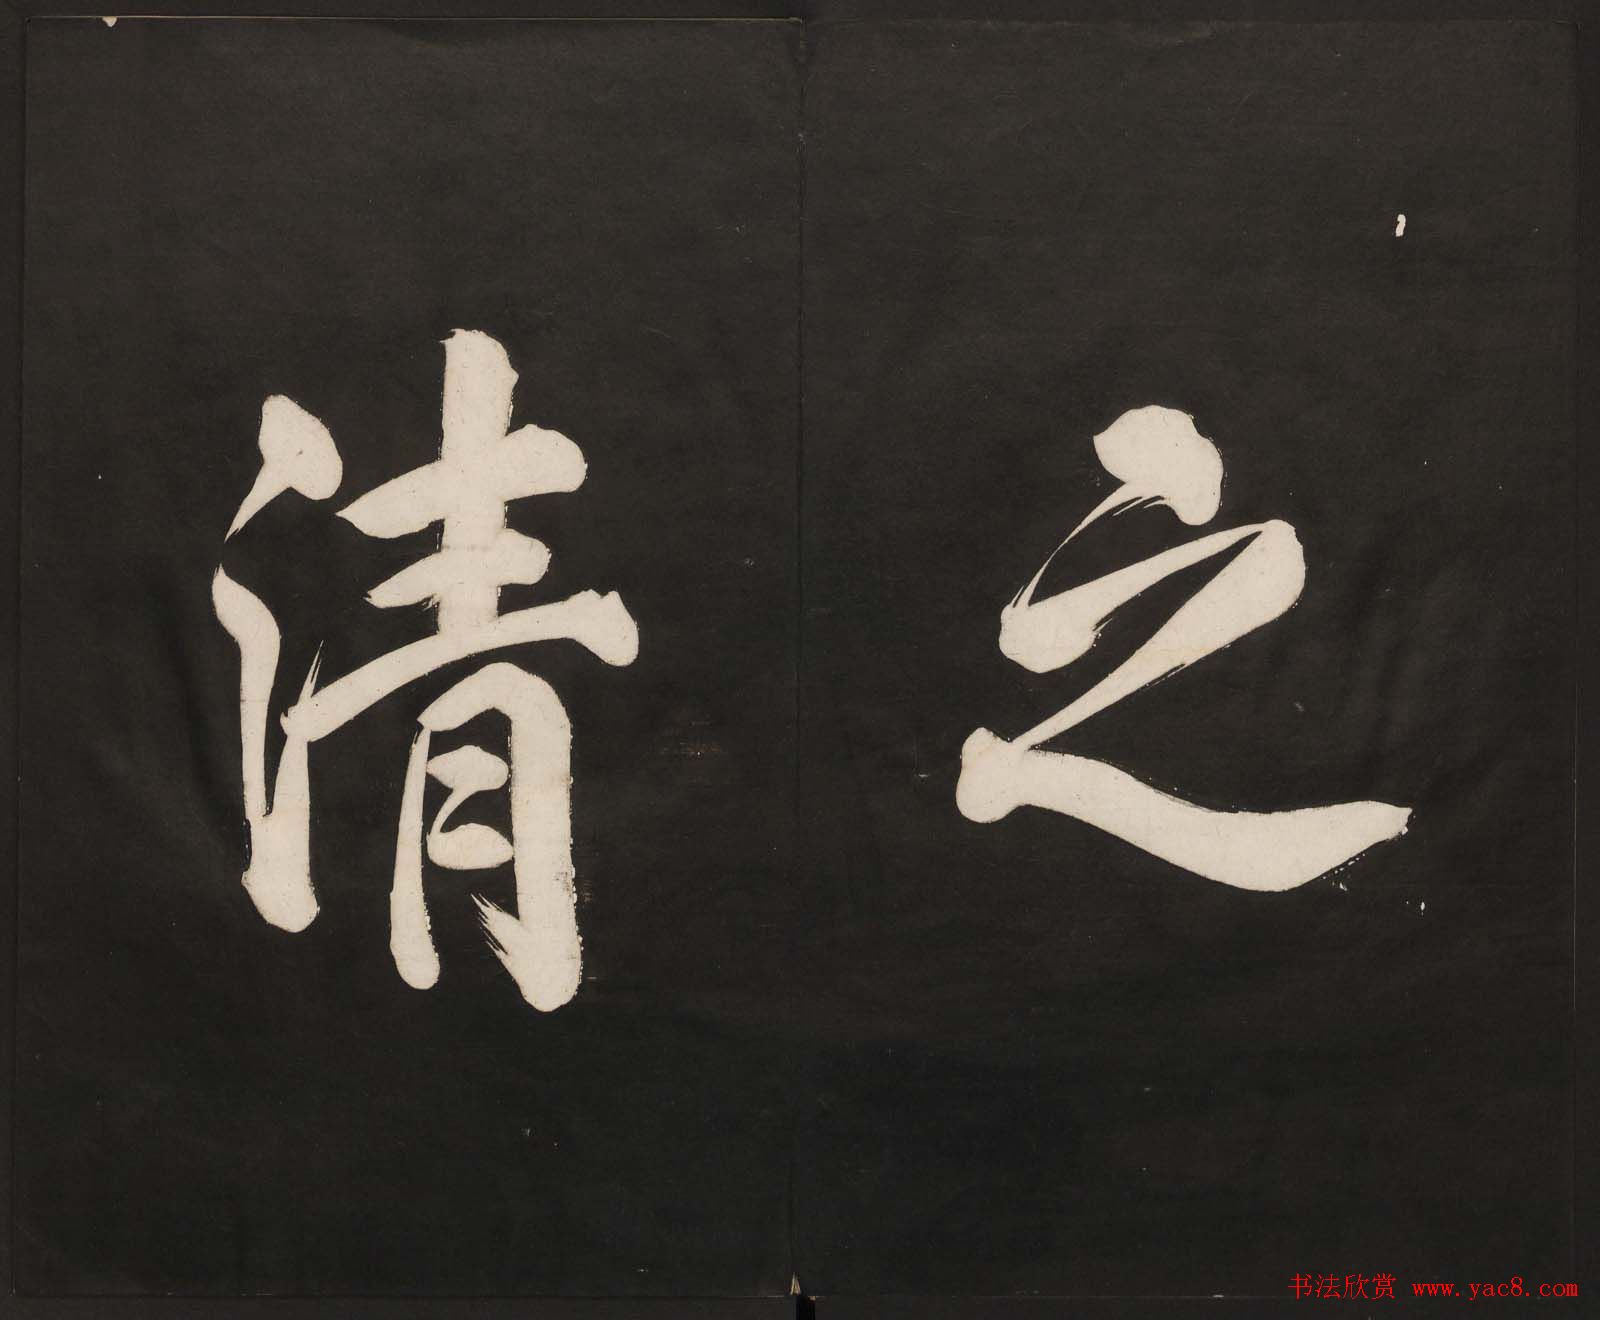 之
清
书法欣赏 www.yac8.com